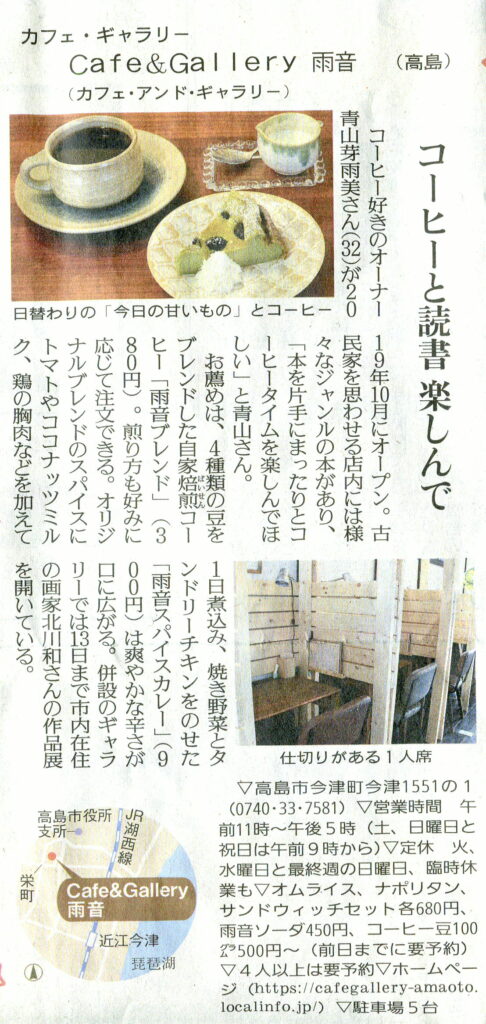 カフェ・ギャラリー
Cafe&Gallery 雨音 （高島）
（カフェ・アンド・ギャラリー）
コーヒーと読書 楽しんで
日替わりの「今日の甘いもの」とコーヒー
コーヒー好きのオーナー
青山芽雨美さん(32)が20
19年10月にオープン。古
民家を思わせる店内には様
々なジャンルの本があり、
「本を片手にまったりとコ
ーヒータイムを楽しんでほ
しい」と青山さん。
お薦めは、4種類の豆を
ブレンドした自家焙煎コー
はいせん
ヒー「雨音ブレンド」（3
80円）。煎り方も好みに
応じて注文できる。オリジ
ナルブレンドのスパイスに
トマトやココナッツミル
ク、鶏の胸肉などを加えて
1日煮込み、焼き野菜とタ
ンドリーチキンをのせた
「雨音スパイスカレー」（9
00円）は爽やかな辛さが
口に広がる。併設のギャラ
リーでは13日まで市内在住
の画家北川和さんの作品展
を開いている。
仕切りがある1人席
▽高島市今津町今津1551の1
（0740・33・7581）▽営業時間 午
前11時〜午後5時（土、日曜日と
祝日は午前9時から）▽定休 火、
水曜日と最終週の日曜日、臨時休
業も▽オムライス、ナポリタン、
サンドウィッチセット各680円、
雨音ソーダ450円、コーヒー豆100
㌘500円〜（前日までに要予約）
▽4人以上は要予約▽ホームペー
ジ（https://cafegallery-amaoto.
localinfo.jp/）▽駐車場5台
高島市役所
支所
JR湖西線
栄町
Cafe&Gallery
雨音
近江今津
琵琶湖